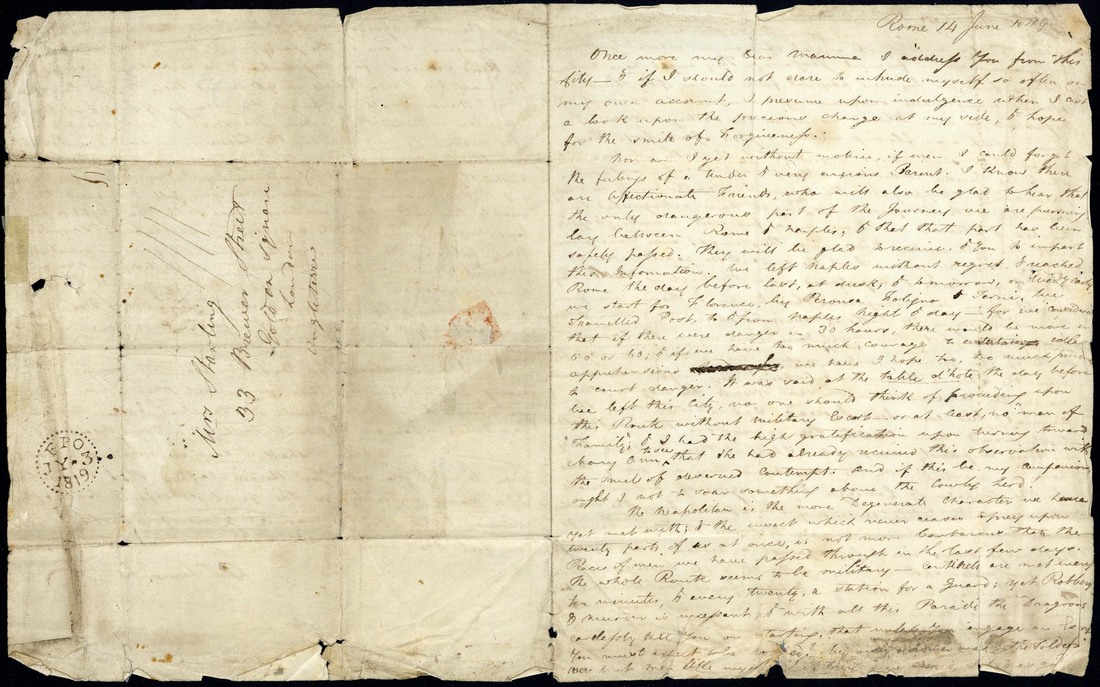 Mrs Sterling
33 Brewer Street
Golden Square
London
Angleterre
F P O
JY. 3
1819
Rome 14 June 1819
Once more my Dear Mamma I address You from this
City – & if I should not dare to intrude myself so often on
my own account, I presume upon indulgence when I cast
a look upon the precious charge at my side, & hope
for the smile of Forgiveness.
Nor am I yet without motive, if even I could forget
the feelings of a tender & very anxious Parent. I know there
are affectionate Friends, who will also be glad to hear that
the only dangerous part of the Journey we are pursuing
lay between Rome & Naples, & that that part has been
safely passed. They will be glad to receive, & You to impart
this Information. We left Naples without regret, reached
Rome the day before last, at dusk; & tomorrow,
we start for Florence, by Perugia, Foligno & Terni, We
Travelled Post, to & from Naples Night & day – for we considered
that if there were danger in 30 hours, there would be more in
50 or 60; & if we have too much courage to entertain
apprehensions we have I hope too, too much
to court danger. It was said at the table d'hote the day before
we left this City, no one should think of proceeding upon
this Route without military Escort or at least, no man of
"Family"; & I had the high gratification upon turning toward
Ann, to see that she had already received this observation with
the smile of deserved Contempt. And if this be my companion
ought I not to soar something above the Cowardly herd.
The Neapolitan is the more Degenerate Character we have
yet met with; & the insect which never ceases to prey upon
twenty parts, of us at once, is not more barbarous than the
Race of men we have passed through in the last few days.
The whole Route seems to be military – are met every
ten minutes, & every twenty, a station for a Guard; yet Robbery
& murder is incessant, & with all this Parade the Dragoons
carelessly tell You on starting, that unless You engage an
You must expect to be the Soldiers